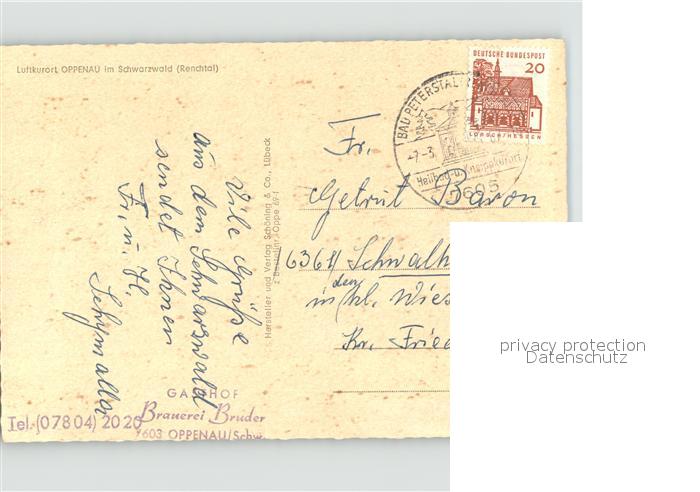 Luftkurort OPPENAU im Schwarzwald (Renchtal)
Viele Grüße
aus dem Schwarzwald
sendet Ihnen
Fr. u. H.
GASTHOF
Brauerei Bruder
7603 OPPENAU/Schw.
Tel. (07804) 2020
Hersteller und Verlag Schöning & Co., Lübeck
DEUTSCHE BUNDESPOST
20
LORSCH/HESSEN
BAD PETERSTAL
-7-3
Heilbad-u. Kneippkurort
7605
Fr.
Getrut Baron
6361 Schwalh
in den hl. Wies
Kr. Fried
privacy protection
Datenschutz